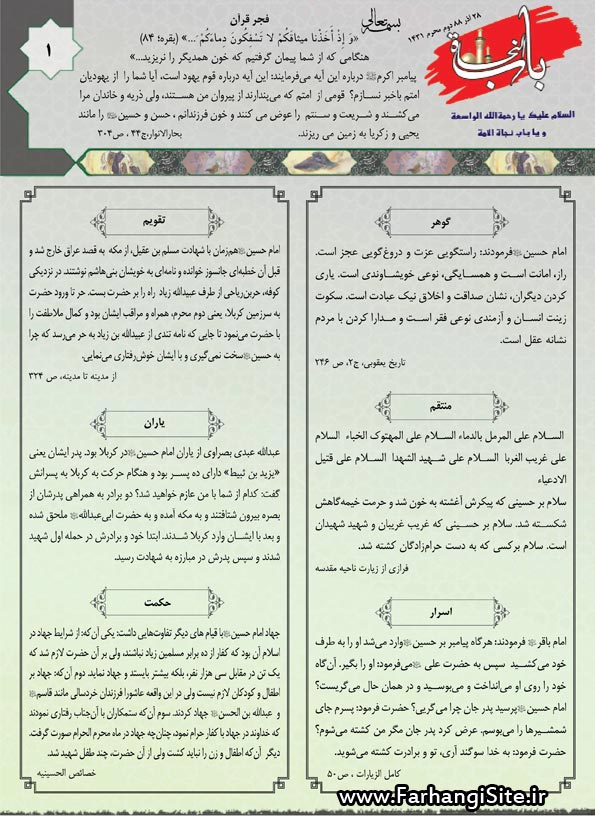 بسمه‌تعالی
۲۸ آذر ۸۸ دوم محرم ۱۴۳۱
باب النجاة
السلام علیک یا رحمة‌الله الواسعة
و یا باب نجاة الامة
۱
فجر قرآن
«وَ إِذْ أَخَذْنا میثاقَکُمْ لا تَسْفِکُونَ دِماءَکُمْ ...» (بقره؛ ۸۴)
هنگامی که از شما پیمان گرفتیم که خون همدیگر را نریزید...»
پیامبر اکرم درباره این آیه می‌فرمایند: این آیه درباره قوم یهود است، آیا شما را از یهودیان
امتم باخبر نسازم؟ قومی از امتم که می‌پندارند از پیروان من هستند، ولی ذریه و خاندان مرا
می‌کشند و شریعت و سنتم را عوض می کنند و خون فرزندانم ، حسن و حسین را مانند
یحیی و زکریا به زمین می ریزند.
بحارالانوار،ج۴۴ ، ص۳۰۴
گوهر
امام حسین فرمودند: راستگویی عزت و دروغ‌گویی عجز است.
راز، امانت است و همسایگی، نوعی خویشاوندی است. یاری
کردن دیگران، نشان صداقت و اخلاق نیک عبادت است. سکوت
زینت انسان و آزمندی نوعی فقر است و مدارا کردن با مردم
نشانه عقل است.
تاریخ یعقوبی، ج۲، ص ۲۴۶
منتقم
السلام علی المرمل بالدماء السلام علی المهتوک الخباء السلام
علی غریب الغربا السلام علی شهید الشهدا السلام علی قتیل
الادعیاء
سلام بر حسینی که پیکرش آغشته به خون شد و حرمت خیمه‌گاهش
شکسته شد. سلام بر حسینی که غریب غریبان و شهید شهیدان
است. سلام برکسی که به دست حرام‌زادگان کشته شد.
فرازی از زیارت ناحیه مقدسه
اسرار
امام باقر فرمودند: هرگاه پیامبر بر حسین وارد می‌شد او را به طرف
خود می‌کشید سپس به حضرت علی می‌فرمود: او را بگیر. آن‌گاه
خود را روی او می‌انداخت و می‌بوسید و در همان حال می‌گریست؟
امام حسین پرسید پدر جان چرا می‌گریی؟ حضرت فرمود: پسرم جای
شمشیرها را می‌بوسم. عرض کرد پدر جان مگر من کشته می‌شوم؟
حضرت فرمود: به خدا سوگند آری، تو و برادرت کشته می‌شوید.
کامل الزیارات ، ص۵۰
تقویم
امام حسین همزمان با شهادت مسلم بن عقیل، از مکه به قصد عراق خارج شد و
قبل آن خطبه‌ای جانسوز خوانده و نامه‌ای به خویشان بنی‌هاشم نوشتند در نزدیکی
کوفه، حربن‌ریاحی از طرف عبیدالله زیاد راه را بر حضرت بست. حر تا ورود حضرت
به سرزمین کربلا، یعنی دوم محرم، همراه و مراقب ایشان بود و کمال ملاطفت را
با حضرت می‌نمود تا جایی که نامه تندی از عبیدالله بن زیاد به حر می‌رسد که چرا
به حسین سخت نمی‌گیری و با ایشان خوش‌رفتاری می‌نمایی.
از مدینه تا مدینه، ص ۳۲۴
یاران
عبدالله عبدی بصراوی از یاران امام حسین در کربلا بود. پدر ایشان یعنی
«یزید بن ثبیط» دارای ده پسر بود و هنگام حرکت به کربلا به پسرانش
گفت: کدام از شما با من عازم خواهید شد؟ دو برادر به همراهی پدرشان از
بصره بیرون شتافتند و به مکه آمده و به حضرت ابی‌عبدالله ملحق شده
و بعد با ایشان وارد کربلا شدند. ابتدا خود و برادرش در حمله اول شهید
شدند و سپس پدرش در مبارزه به شهادت رسید.
حکمت
جهاد امام حسین با قیام های دیگر تفاوت‌هایی داشت: یکی آن‌که: از شرایط جهاد در
اسلام آن بود که کفار از ده برابر مسلمین زیاد نباشند، ولی بر آن حضرت لازم شد که
یک تن در مقابل سی هزار نفر، بلکه بیشتر بایستد و جهاد نماید. دوم آن‌که: جهاد بر
اطفال و کودکان لازم نیست ولی در این واقعه عاشورا فرزندان خردسالی مانند قاسم
و عبدالله بن الحسن جهاد کردند. سوم آن‌که ستمکاران با آن‌جناب رفتاری نمودند
که خداوند در جهاد با کفار حرام نمود، چنان‌چه جهاد در ماه محرم الحرام صورت گرفت.
دیگر آن‌که اطفال و زن را نباید کشت ولی از آن حضرت، چند طفل شهید شد.
خصائص الحسینیه
www.FarhangiSite.ir